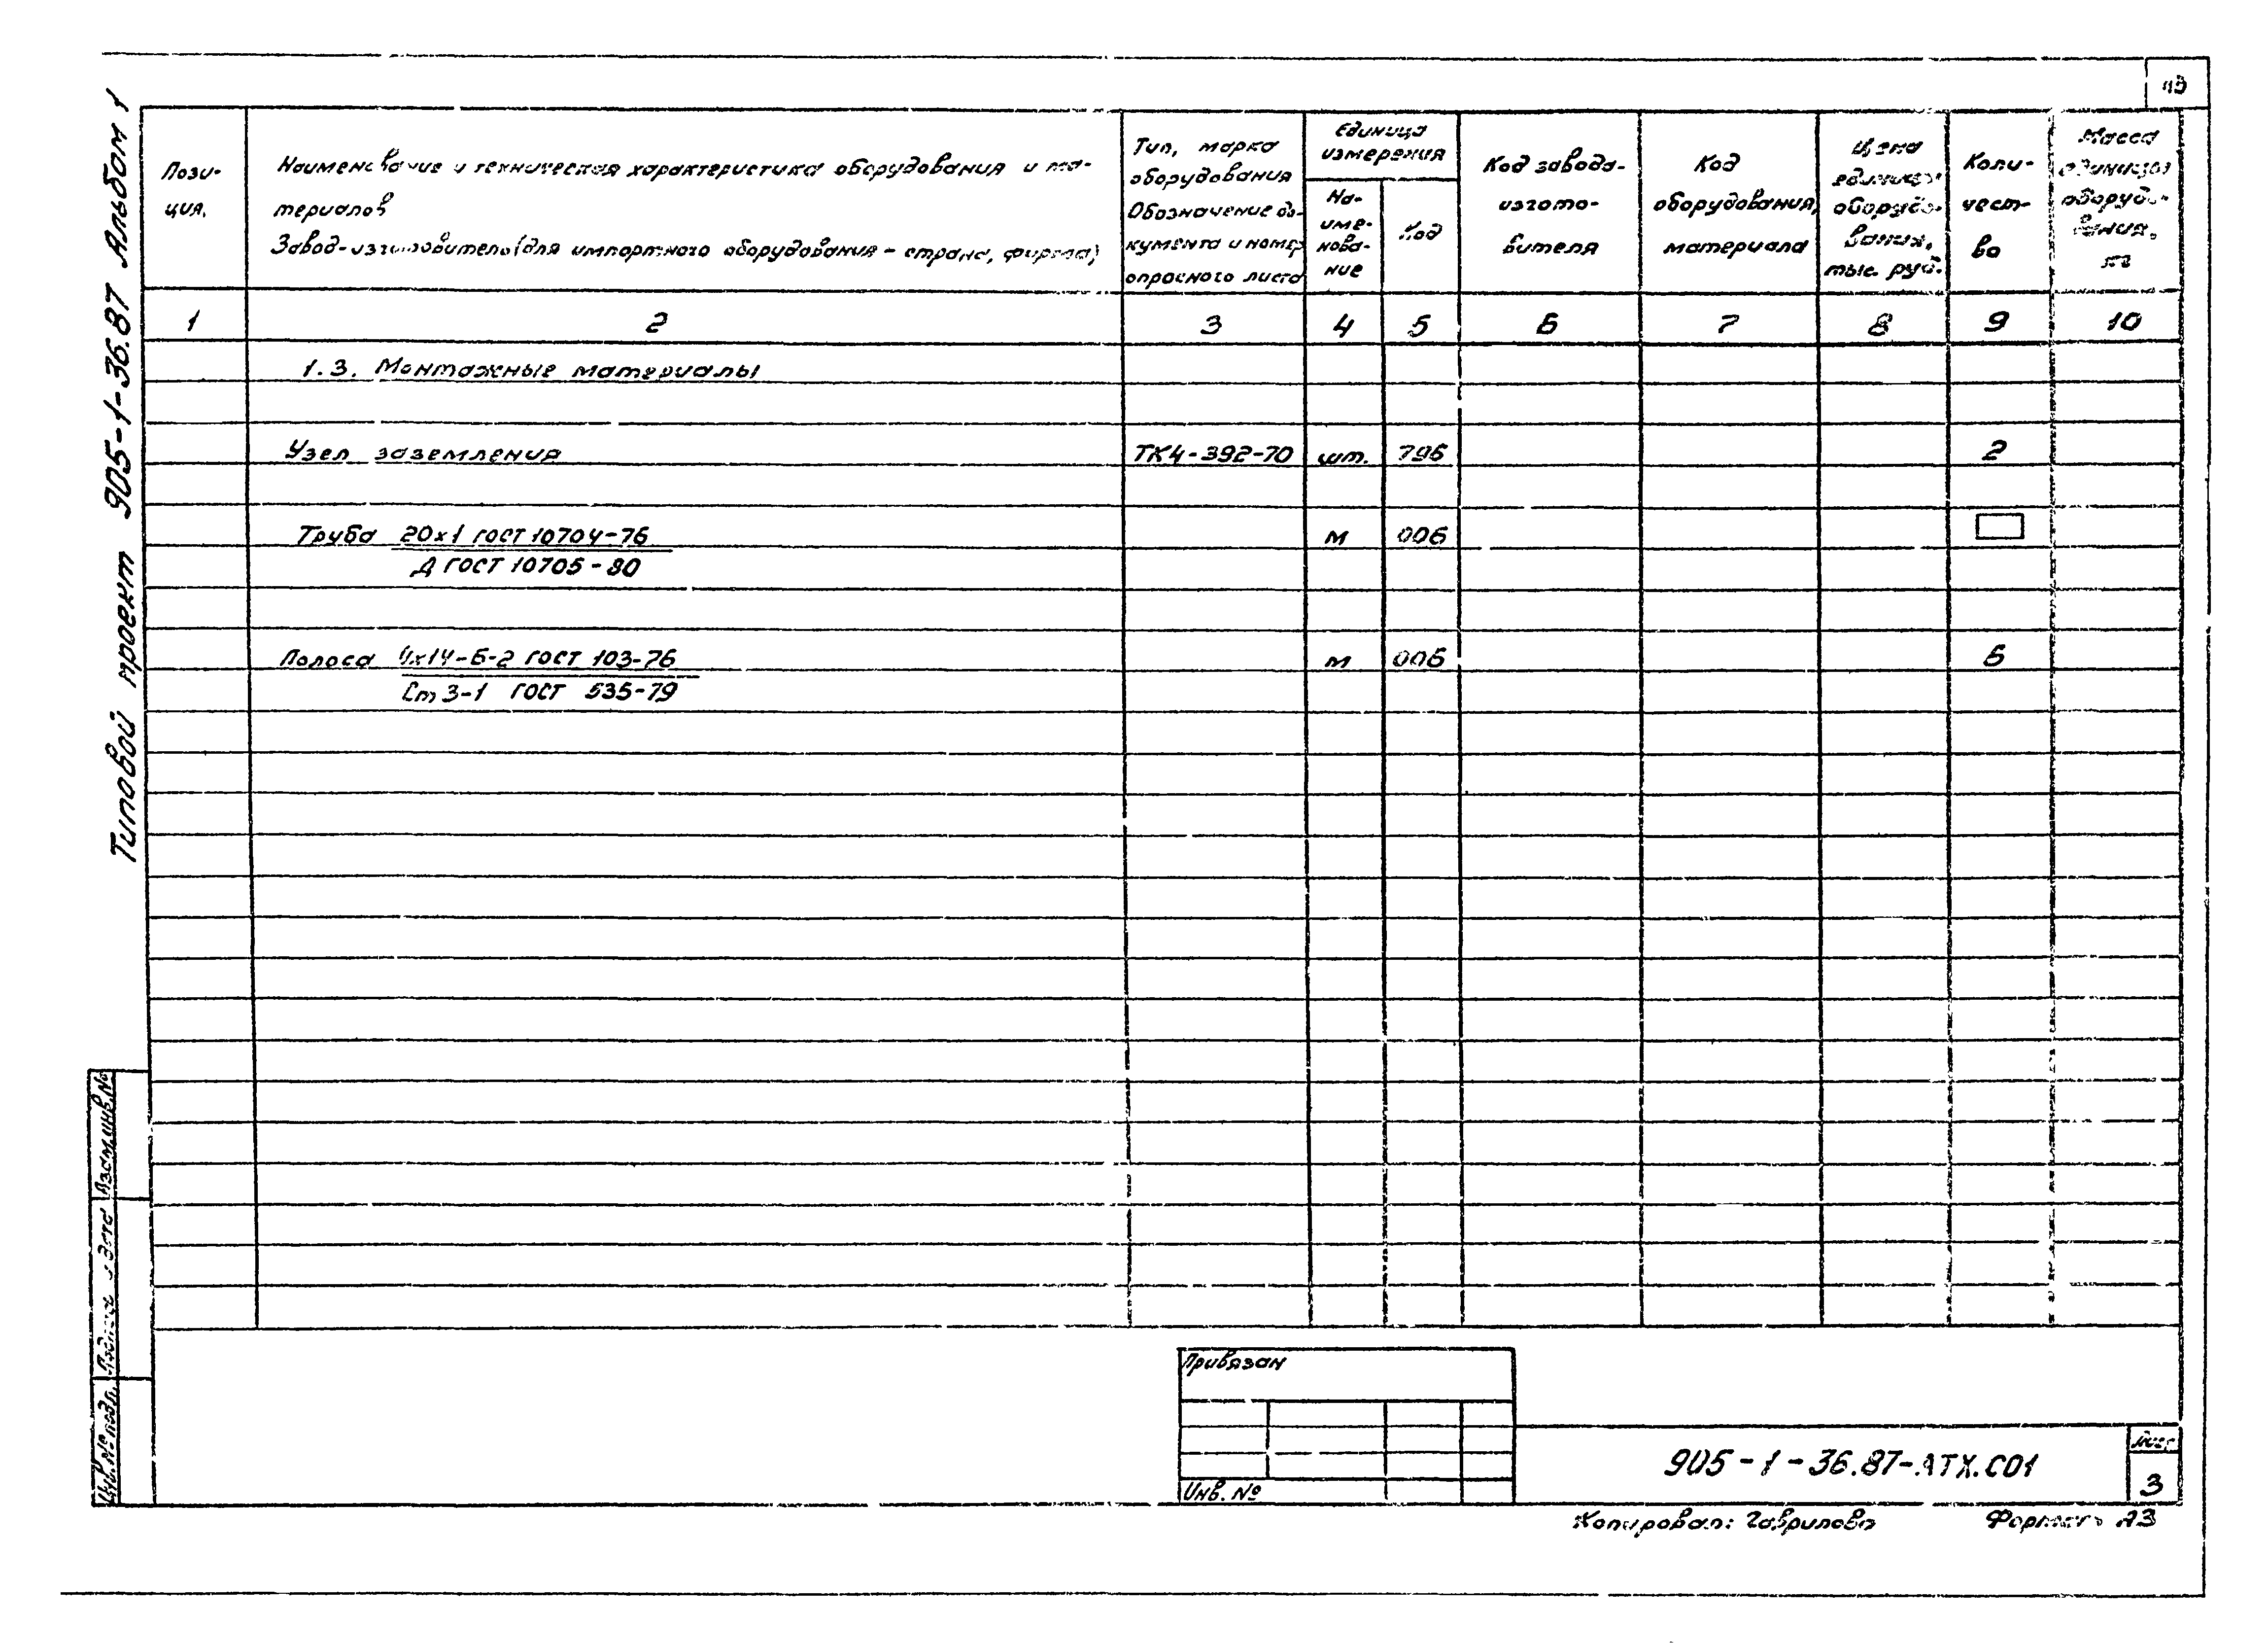 Типовой проект 905-1-36.87 Альбом 1
Пози-
ция.
Наименование и техническая характеристика оборудования и ма-
териалов
Завод-изготовитель (для импортного оборудования - страна, фирма)
Тип, марка
оборудования
Обозначение до-
кумента и номер
опросного листа
Единица
измерения
На-
име-
нова-
ние
Код
Код завода-
изгото-
вителя
Код
оборудования,
материала
Цена
единицы
оборудо-
вания,
тыс. руб.
Коли-
чест-
во
Масса
единицы
оборудо-
вания,
кг
1 2 3 4 5 6 7 8 9 10
1.3. Монтажные материалы
Узел заземления ТК4-392-70 шт. 796 2
Труба 20х1 ГОСТ 10704-76 м 006
Д ГОСТ 10705-80
Полоса 4х14-Б-2 ГОСТ 103-76 м 006 6
Ст 3-1 ГОСТ 535-79
Взам.инв.№
Подпись и дата
Инв.№ подл.
Привязан
Инв. №
905-1-36.87-АТХ.СО1
Лист
3
Копировал: Гаврилова Формат А3